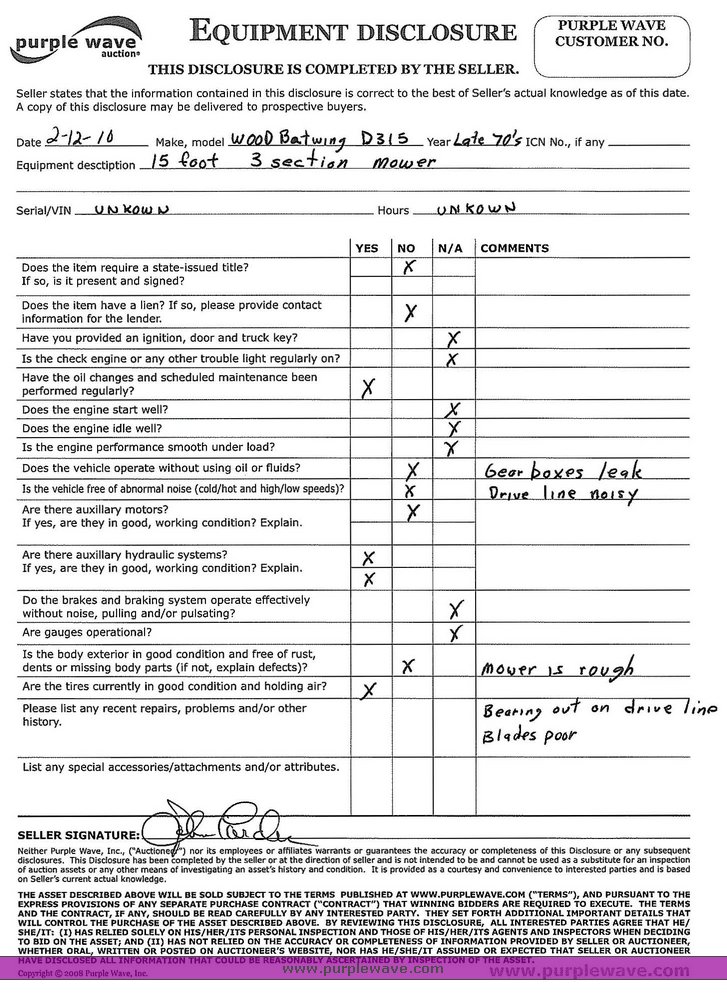 purple wave
auction®
EQUIPMENT DISCLOSURE
PURPLE WAVE
CUSTOMER NO.
THIS DISCLOSURE IS COMPLETED BY THE SELLER.
Seller states that the information contained in this disclosure is correct to the best of Seller's actual knowledge as of this date.
A copy of this disclosure may be delivered to prospective buyers.
Date 2-12-10 Make, model WOOD Batwing D315 Year Late 70's ICN No., if any
Equipment desctiption 15 foot 3 section mower
Serial/VIN UNKOWN Hours UNKOWN
YES NO N/A COMMENTS
Does the item require a state-issued title? X
If so, is it present and signed?
Does the item have a lien? If so, please provide contact
information for the lender. X
Have you provided an ignition, door and truck key? X
Is the check engine or any other trouble light regularly on? X
Have the oil changes and scheduled maintenance been
performed regularly? X
Does the engine start well? X
Does the engine idle well? X
Is the engine performance smooth under load? X
Does the vehicle operate without using oil or fluids? X Gear boxes leak
Is the vehicle free of abnormal noise (cold/hot and high/low speeds)? X Drive line noisy
Are there auxillary motors? X
If yes, are they in good, working condition? Explain.
Are there auxillary hydraulic systems? X
If yes, are they in good, working condition? Explain. X
Do the brakes and braking system operate effectively
without noise, pulling and/or pulsating? X
Are gauges operational? X
Is the body exterior in good condition and free of rust,
dents or missing body parts (if not, explain defects)? X Mower is rough
Are the tires currently in good condition and holding air? X
Please list any recent repairs, problems and/or other Bearing out on drive line
history. Blades poor
List any special accessories/attachments and/or attributes.
SELLER SIGNATURE:
Neither Purple Wave, Inc., ("Auctioneer") nor its employees or affiliates warrants or guarantees the accuracy or completeness of this Disclosure or any subsequent
disclosures. This Disclosure has been completed by the seller or at the direction of seller and is not intended to be and cannot be used as a substitute for an inspection
of auction assets or any other means of investigating an asset's history and condition. It is provided as a courtesy and convenience to interested parties and is based
on Seller's current actual knowledge.
THE ASSET DESCRIBED ABOVE WILL BE SOLD SUBJECT TO THE TERMS PUBLISHED AT WWW.PURPLEWAVE.COM ("TERMS"), AND PURSUANT TO THE
EXPRESS PROVISIONS OF ANY SEPARATE PURCHASE CONTRACT ("CONTRACT") THAT WINNING BIDDERS ARE REQUIRED TO EXECUTE. THE TERMS
AND THE CONTRACT, IF ANY, SHOULD BE READ CAREFULLY BY ANY INTERESTED PARTY. THEY SET FORTH ADDITIONAL IMPORTANT DETAILS THAT
WILL CONTROL THE PURCHASE OF THE ASSET DESCRIBED ABOVE. BY REVIEWING THIS DISCLOSURE, ALL INTERESTED PARTIES AGREE THAT HE/
SHE/IT: (I) HAS RELIED SOLELY ON HIS/HER/ITS PERSONAL INSPECTION AND THOSE OF HIS/HER/ITS AGENTS AND INSPECTORS WHEN DECIDING
TO BID ON THE ASSET; AND (II) HAS NOT RELIED ON THE ACCURACY OR COMPLETENESS OF INFORMATION PROVIDED BY SELLER OR AUCTIONEER,
WHETHER ORAL, WRITTEN OR POSTED ON AUCTIONEER'S WEBSITE, NOR HAS HE/SHE/IT ASSUMED OR EXPECTED THAT SELLER OR AUCTIONEER
HAVE DISCLOSED ALL INFORMATION THAT COULD BE REASONABLY ASCERTAINED BY INSPECTION OF THE ASSET.
Copyright © 2008 Purple Wave, Inc. www.purplewave.com www.purplewave.com